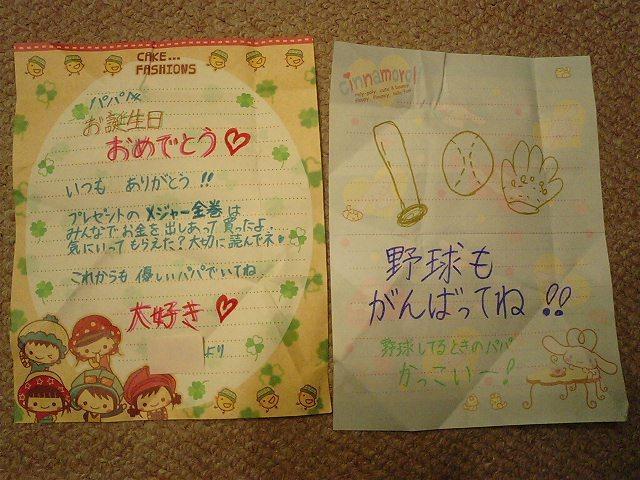 CAKE...
FASHIONS
パパへ
お誕生日
おめでとう♡
いつも ありがとう!!
プレゼントの メジャー全巻は
みんなでお金を出しあって買ったよ。
気にいってもらえた?大切に読んでネ。
これからも 優しいパパでいてね
大好き♡
より
cinnamoroll
野球も
がんばってね!!
野球してるときのパパ
かっこいー!